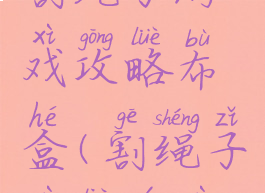 xì gōng lüè bù
戏攻略布
hé gē shéng zǐ
盒(割绳子